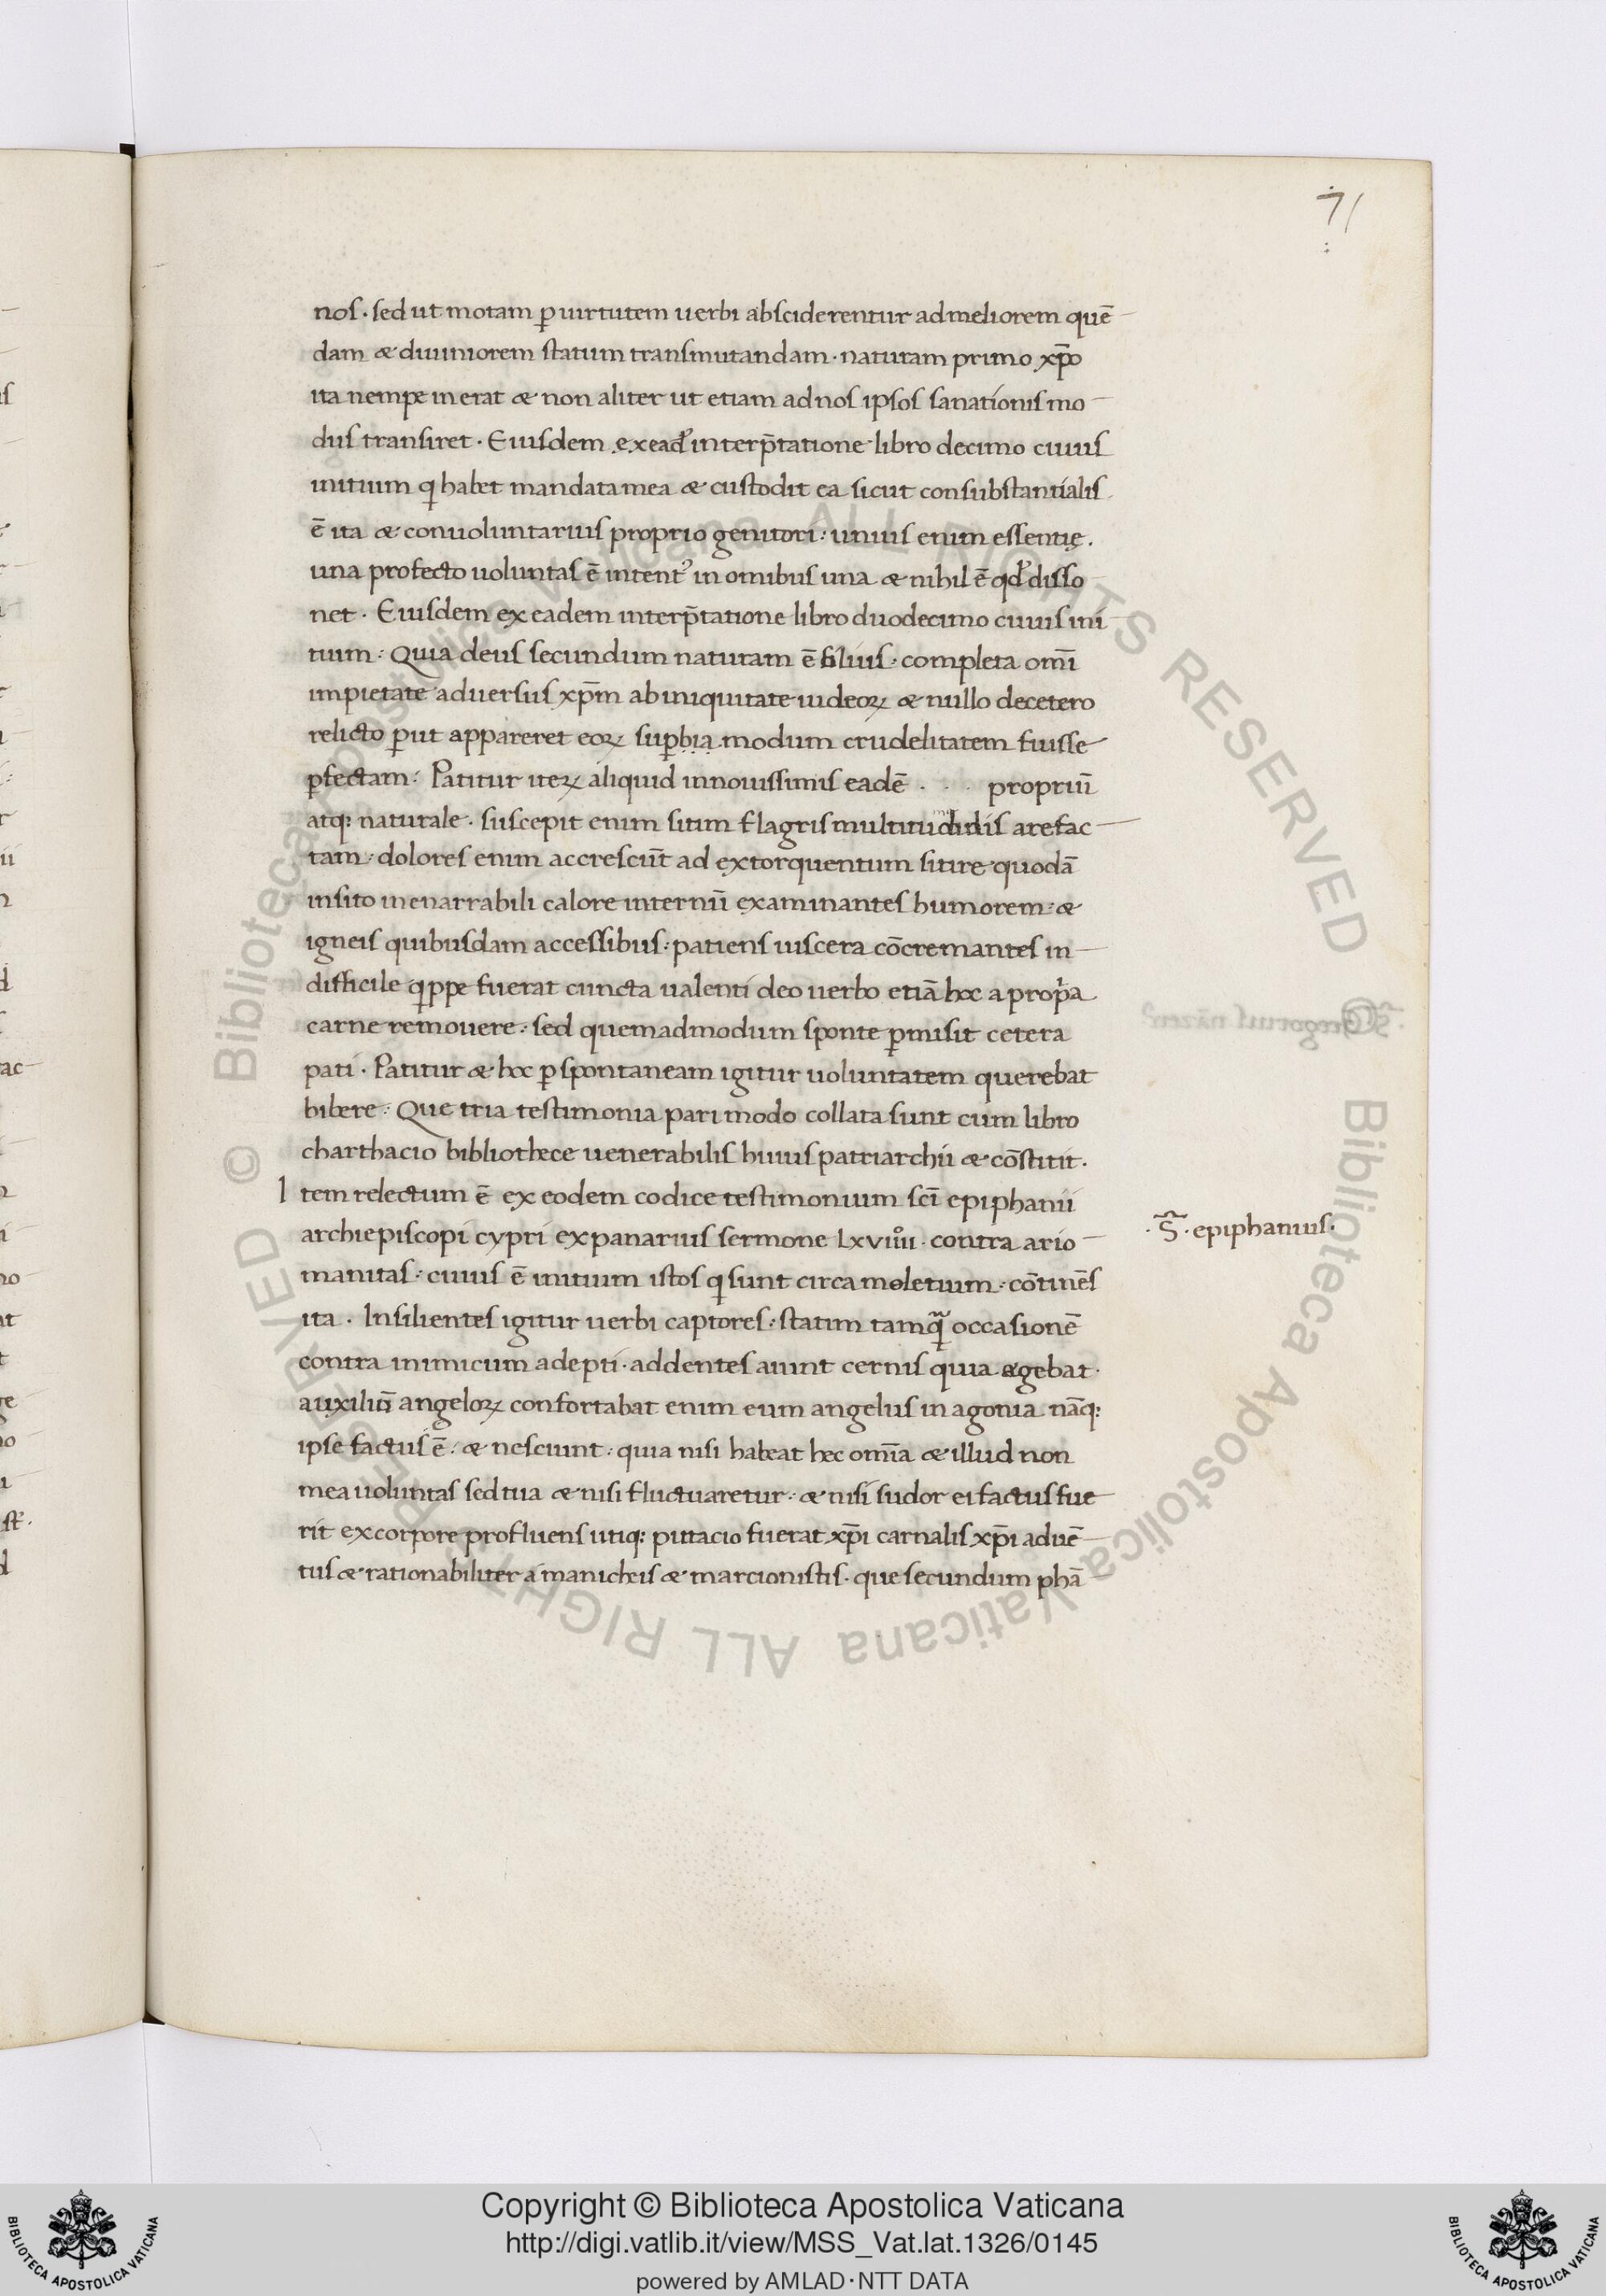 71
nos · sed ut motam ꝑ uirtutem uerbi absciderentur ad meliorem quē
dam & diuiniorem statum transmutandam · naturam primo xp̄o
ita nempe inerat & non aliter ut etiam ad nos ipsos sanationis mo
dus transiret · Eiusdem ex eadē interp̄tatione libro decimo cuius
initium qi habet mandata mea & custodit ea sicut consubstantialis
ē ita & conuoluntarius proprio genitori : unius enim essentię .
una profecto uoluntas ē intentꝰ in omibus una & nihil ē qd̓ disso
net · Eiusdem ex eadem interp̄tatione libro duodecimo cuius ini
tium : Quia deus secundum naturam ē filius : completa om̄i
impietate aduersus xp̄m ab iniquitate iudeoꝝ & nullo de cetero
relicto ꝑ ut appareret eoꝝ suꝑbia modum crudelitatem fuisse
ꝑfectam : Patitur iteꝝ aliquid in nouissimis eadē . . . propriū
atq: naturale · suscepit enim sitim flagris multitudinis arefac
tam : dolores enim accrescūt ad extorquentum sitire quodā
insito inenarrabili calore internū examinantes humorem : &
igneis quibusdam accessibus : patiens uiscera cōcremantes in
difficile qippe fuerat cuncta ualenti deo uerbo etiā hoc a prop̓a
carne remouere : sed quemadmodum sponte ꝑmisit cetera
pati · Patitur & hoc ꝑ spontaneam igitur uoluntatem querebat
bibere : Que tria testimonia pari modo collata sunt cum libro
charthacio bibliothece uenerabilis huius patriarchii & cōstitit .
Item relectum ē ex eodem codice testimonium sc̄i epiphanii
archiepiscopi cypri ex panarius sermone lxviiii · contra ario
manitas : cuius ē initium istos qi sunt circa moletium : cōtinēs
ita · Insilientes igitur uerbi captores : statim tamqͣ occasionē
contra inimicum adepti · addentes aiunt cernis quia agebat ·
auxiliū angeloꝝ confortabat enim eum angelus in agonia nāq:
ipse factus ē : & nesciunt : quia nisi habeat hec om̄ia & illud non
mea uoluntas sed tua & nisi fluctuaretur : & nisi sudor ei factus fue
rit ex corpore profluens utiq: putacio fuerat xp̄i carnalis xp̄i aduē
tus & rationabiliter a manicheis & marcionistis · que secundum phā
· S̃ · epiphanius ·
© Biblioteca Apostolica Vaticana ALL RIGHTS RESERVED
© Biblioteca Apostolica Vaticana ALL RIGHTS RESERVED
Copyright © Biblioteca Apostolica Vaticana
http://digi.vatlib.it/view/MSS_Vat.lat.1326/0145
powered by AMLAD·NTT DATA
BIBLIOTECA APOSTOLICA VATICANA
BIBLIOTECA APOSTOLICA VATICANA